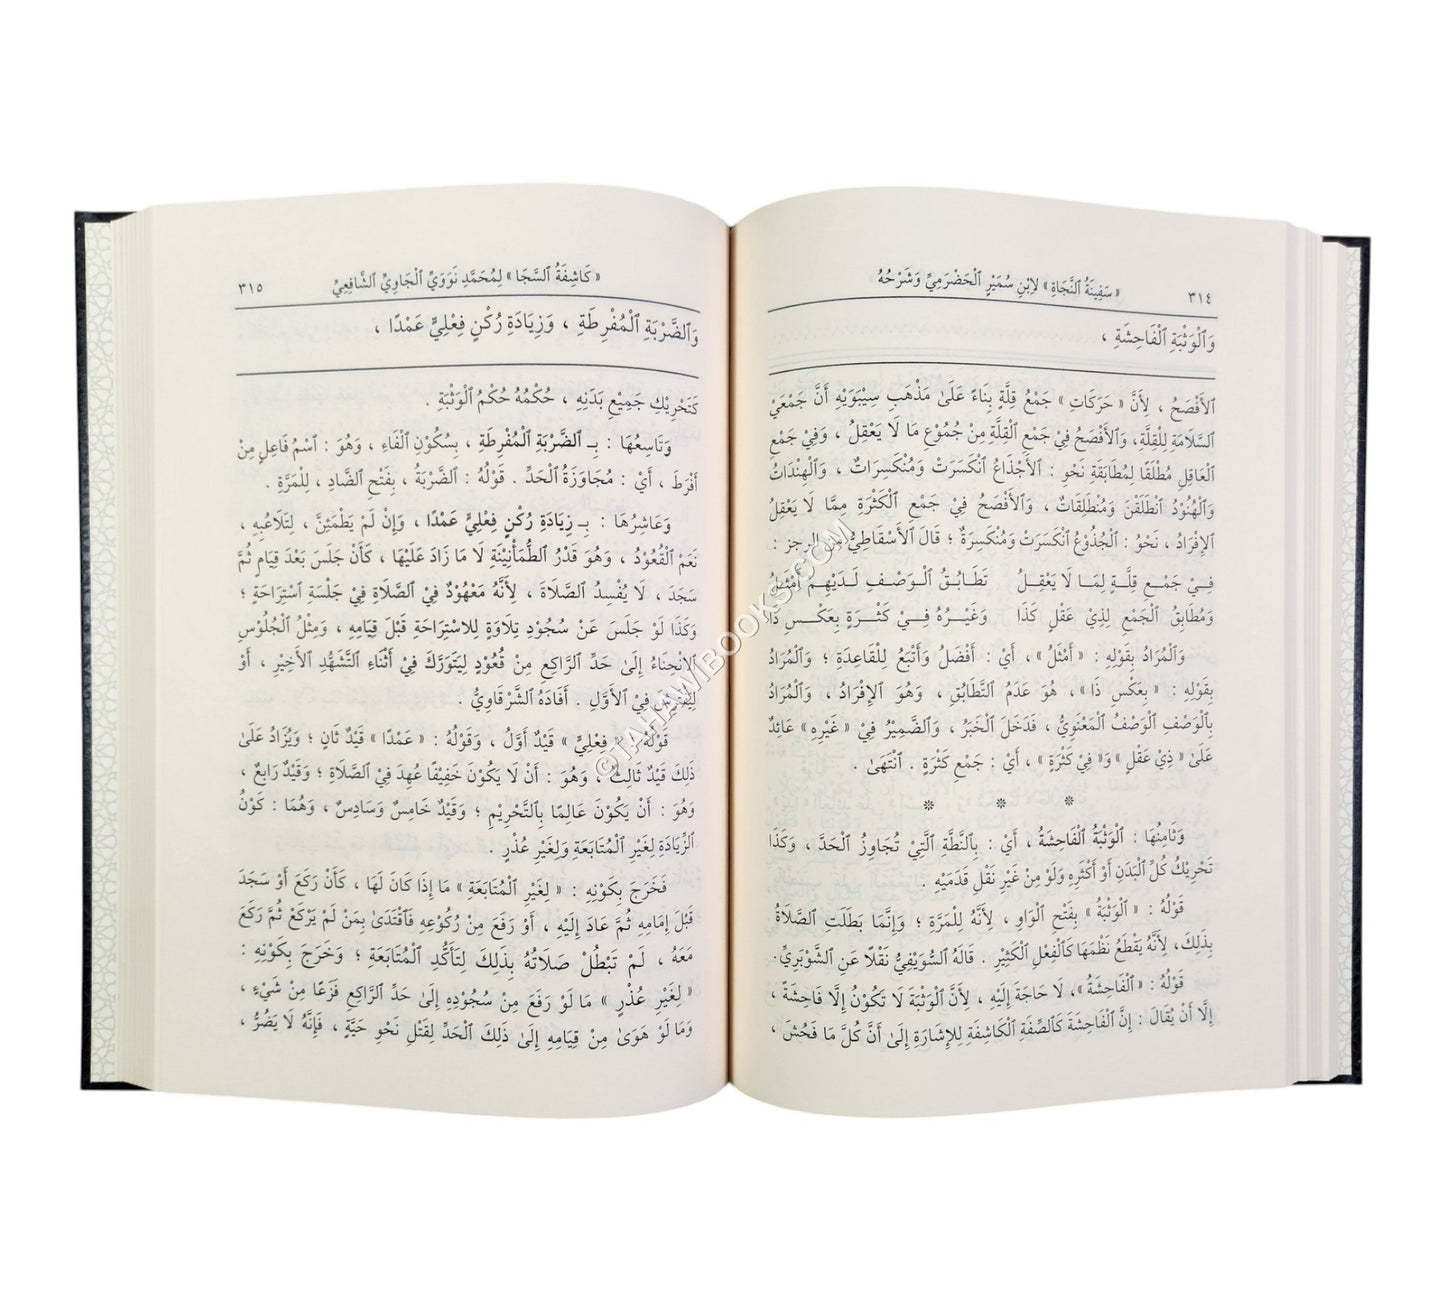 ٣١٤ « سَفِينَةُ ٱلنَّجَاةِ » لِابْنِ سُمَيْرٍ ٱلْحَضْرَمِيِّ وَشَرْحُهُ
وَٱلْوَثْبَةِ ٱلْفَاحِشَةِ ،
ٱلأَفْصَحُ ، لِأَنَّ « حَرَكَاتٍ » جَمْعُ قِلَّةٍ بِنَاءً عَلَىٰ مَذْهَبِ سِيْبَوَيْهِ أَنَّ جَمْعَيْ
ٱلسَّلَامَةِ لِلْقِلَّةِ، وَٱلأَفْصَحُ فِيْ جَمْعِ ٱلْقِلَّةِ مِنْ جُمُوْعِ مَا لَا يَعْقِلُ ، وَفِيْ جَمْعِ
ٱلْعَاقِلِ مُطْلَقًا لِمُطَابَقَةِ نَحْوِ : ٱلأَجْذَاعُ ٱنْكَسَرَتْ وَمُنْكَسِرَاتٌ ، وَٱلْهِنْدَاتُ
وَٱلْهُنُوْدُ ٱنْطَلَقْنَ وَمُنْطَلِقَاتٌ ، وَٱلأَفْصَحُ فِيْ جَمْعِ ٱلْكَثْرَةِ مِمَّا لَا يَعْقِلُ
ٱلإِفْرَادُ ، نَحْوُ : ٱلْجُذُوْعُ ٱنْكَسَرَتْ وَمُنْكَسِرَةٌ ؛ قَالَ ٱلأَسْقَاطِيُّ من الرجز :
فِيْ جَمْعِ قِلَّةٍ لِمَا لَا يَعْقِلُ تَطَابُقُ ٱلْوَصْفِ لَدَيْهِمْ أَمْثَلُ
وَمُطَابِقُ ٱلْجَمْعِ لِذِيْ عَقْلٍ كَذَا وَغَيْرُهُ فِيْ كَثْرَةٍ بِعَكْسِ ذَا
وَٱلْمُرَادُ بِقَوْلِهِ : « أَمْثَلُ » ، أَيْ : أَفْضَلُ وَأَتْبَعُ لِلْقَاعِدَةِ ؛ وَٱلْمُرَادُ
بِقَوْلِهِ : « بِعَكْسِ ذَا » ، هُوَ عَدَمُ ٱلتَّطَابُقِ ، وَهُوَ ٱلإِفْرَادُ ، وَٱلْمُرَادُ
بِٱلْوَصْفِ ٱلْوَصْفُ ٱلْمَعْنَوِيُّ ، فَدَخَلَ ٱلْخَبَرُ ، وَٱلضَّمِيْرُ فِيْ « غَيْرِهِ » عَائِدٌ
عَلَىٰ « ذِيْ عَقْلٍ » وَ« فِيْ كَثْرَةٍ » ، أَيْ : جَمْعِ كَثْرَةٍ . ٱنْتَهَىٰ .
* * *
وَثَامِنُهَا : ٱلْوَثْبَةُ ٱلْفَاحِشَةُ ، أَيْ : بِٱلنَّطَّةِ ٱلَّتِيْ تُجَاوِزُ ٱلْحَدَّ ، وَكَذَا
تَحْرِيْكُ كُلِّ ٱلْبَدَنِ أَوْ أَكْثَرِهِ وَلَوْ مِنْ غَيْرِ نَقْلِ قَدَمَيْهِ .
قَوْلُهُ : « ٱلْوَثْبَةُ » بِفَتْحِ ٱلْوَاوِ ، لِأَنَّهُ لِلْمَرَّةِ ؛ وَإِنَّمَا بَطَلَتِ ٱلصَّلَاةُ
بِذَلِكَ، لِأَنَّهُ يَقْطَعُ نَظْمَهَا كَٱلْفِعْلِ ٱلْكَثِيْرِ . قَالَهُ ٱلسُّوَيْفِيُّ نَقْلًا عَنِ ٱلشَّوْبَرِيِّ.
قَوْلُهُ : « ٱلْفَاحِشَةُ »، لَا حَاجَةَ إِلَيْهِ ، لِأَنَّ ٱلْوَثْبَةَ لَا تَكُوْنُ إِلَّا فَاحِشَةً ،
إِلَّا أَنْ يُقَالَ : إِنَّ ٱلْفَاحِشَةَ كَٱلصِّفَةِ ٱلْكَاشِفَةِ لِلإِشَارَةِ إِلَىٰ أَنَّ كُلَّ مَا فَحُشَ ،
« كَاشِفَةُ ٱلسَّجَا » لِمُحَمَّدِ نَوَوِيِّ ٱلْجَاوِيِّ ٱلشَّافِعِيِّ ٣١٥
وَٱلضَّرْبَةِ ٱلْمُفْرِطَةِ ، وَزِيَادَةِ رُكْنٍ فِعْلِيٍّ عَمْدًا ،
كَتَحْرِيْكِ جَمِيْعِ بَدَنِهِ ، حُكْمُهُ حُكْمُ ٱلْوَثْبَةِ .
وَتَاسِعُهَا : بِـ ٱلضَّرْبَةِ ٱلْمُفْرِطَةِ ، بِسُكُوْنِ ٱلْفَاءِ ، وَهُوَ : ٱسْمُ فَاعِلٍ مِنْ
أَفْرَطَ ، أَيْ : مُجَاوَزَةُ ٱلْحَدِّ . قَوْلُهُ : ٱلضَّرْبَةُ ، بِفَتْحِ ٱلضَّادِ ، لِلْمَرَّةِ .
وَعَاشِرُهَا : بِـ زِيَادَةِ رُكْنٍ فِعْلِيٍّ عَمْدًا ، وَإِنْ لَمْ يَطْمَئِنَّ ، لِتَلَاعُبِهِ ،
نَعَمْ ٱلْقُعُوْدُ ، وَهُوَ قَدْرُ ٱلطُّمَأْنِيْنَةِ لَا مَا زَادَ عَلَيْهَا ، كَأَنْ جَلَسَ بَعْدَ قِيَامٍ ثُمَّ
سَجَدَ ، لَا يُفْسِدُ ٱلصَّلَاةَ ، لِأَنَّهُ مَعْهُوْدٌ فِيْ ٱلصَّلَاةِ فِيْ جَلْسَةِ ٱسْتِرَاحَةٍ ؛
وَكَذَا لَوْ جَلَسَ عَنْ سُجُوْدِ تِلَاوَةٍ لِلاسْتِرَاحَةِ قَبْلَ قِيَامِهِ ، وَمِثْلُ ٱلْجُلُوْسِ
ٱلانْحِنَاءُ إِلَىٰ حَدِّ ٱلرَّاكِعِ مِنْ قُعُوْدٍ لِيَتَوَرَّكَ فِيْ أَثْنَاءِ ٱلتَّشَهُّدِ ٱلأَخِيْرِ ، أَوْ
لِيَفْتَرِشَ فِيْ ٱلأَوَّلِ . أَفَادَهُ ٱلشَّرْقَاوِيُّ .
قَوْلُهُ : « فِعْلِيٍّ » قَيْدٌ أَوَّلُ ، وَقَوْلُهُ : « عَمْدًا » قَيْدٌ ثَانٍ ؛ وَيُزَادُ عَلَىٰ
ذَلِكَ قَيْدٌ ثَالِثٌ ، وَهُوَ : أَنْ لَا يَكُوْنَ خَفِيْفًا عُهِدَ فِيْ ٱلصَّلَاةِ ؛ وَقَيْدٌ رَابِعٌ ،
وَهُوَ : أَنْ يَكُوْنَ عَالِمًا بِٱلتَّحْرِيْمِ ؛ وَقَيْدٌ خَامِسٌ وَسَادِسٌ ، وَهُمَا : كَوْنُ
ٱلزِّيَادَةِ لِغَيْرِ ٱلْمُتَابَعَةِ وَلِغَيْرِ عُذْرٍ .
فَخَرَجَ بِكَوْنِهِ : « لِغَيْرِ ٱلْمُتَابَعَةِ » مَا إِذَا كَانَ لَهَا ، كَأَنْ رَكَعَ أَوْ سَجَدَ
قَبْلَ إِمَامِهِ ثُمَّ عَادَ إِلَيْهِ ، أَوْ رَفَعَ مِنْ رُكُوْعِهِ فَٱقْتَدَىٰ بِمَنْ لَمْ يَرْكَعْ ثُمَّ رَكَعَ
مَعَهُ ، لَمْ تَبْطُلْ صَلَاتُهُ بِذَلِكَ لِتَأَكُّدِ ٱلْمُتَابَعَةِ ؛ وَخَرَجَ بِكَوْنِهِ :
« لِغَيْرِ عُذْرٍ » مَا لَوْ رَفَعَ مِنْ سُجُوْدِهِ إِلَىٰ حَدِّ ٱلرَّاكِعِ فَزَعًا مِنْ شَيْءٍ ،
وَمَا لَوْ هَوَىٰ مِنْ قِيَامِهِ إِلَىٰ ذَلِكَ ٱلْحَدِّ لِقَتْلِ نَحْوِ حَيَّةٍ ، فَإِنَّهُ لَا يَضُرُّ ،
©TAHAWIBOOKS.COM